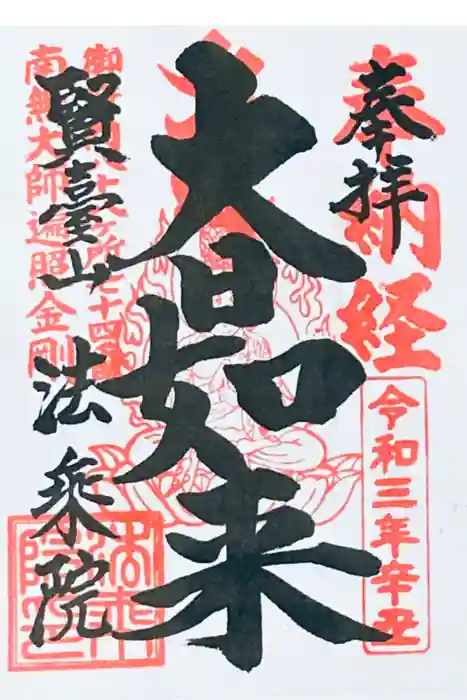 奉拝
奉納経
令和三年辛丑
大日如来
御府内八十八ヶ所七十四番
南無大師遍照金剛
賢臺山
法乗院